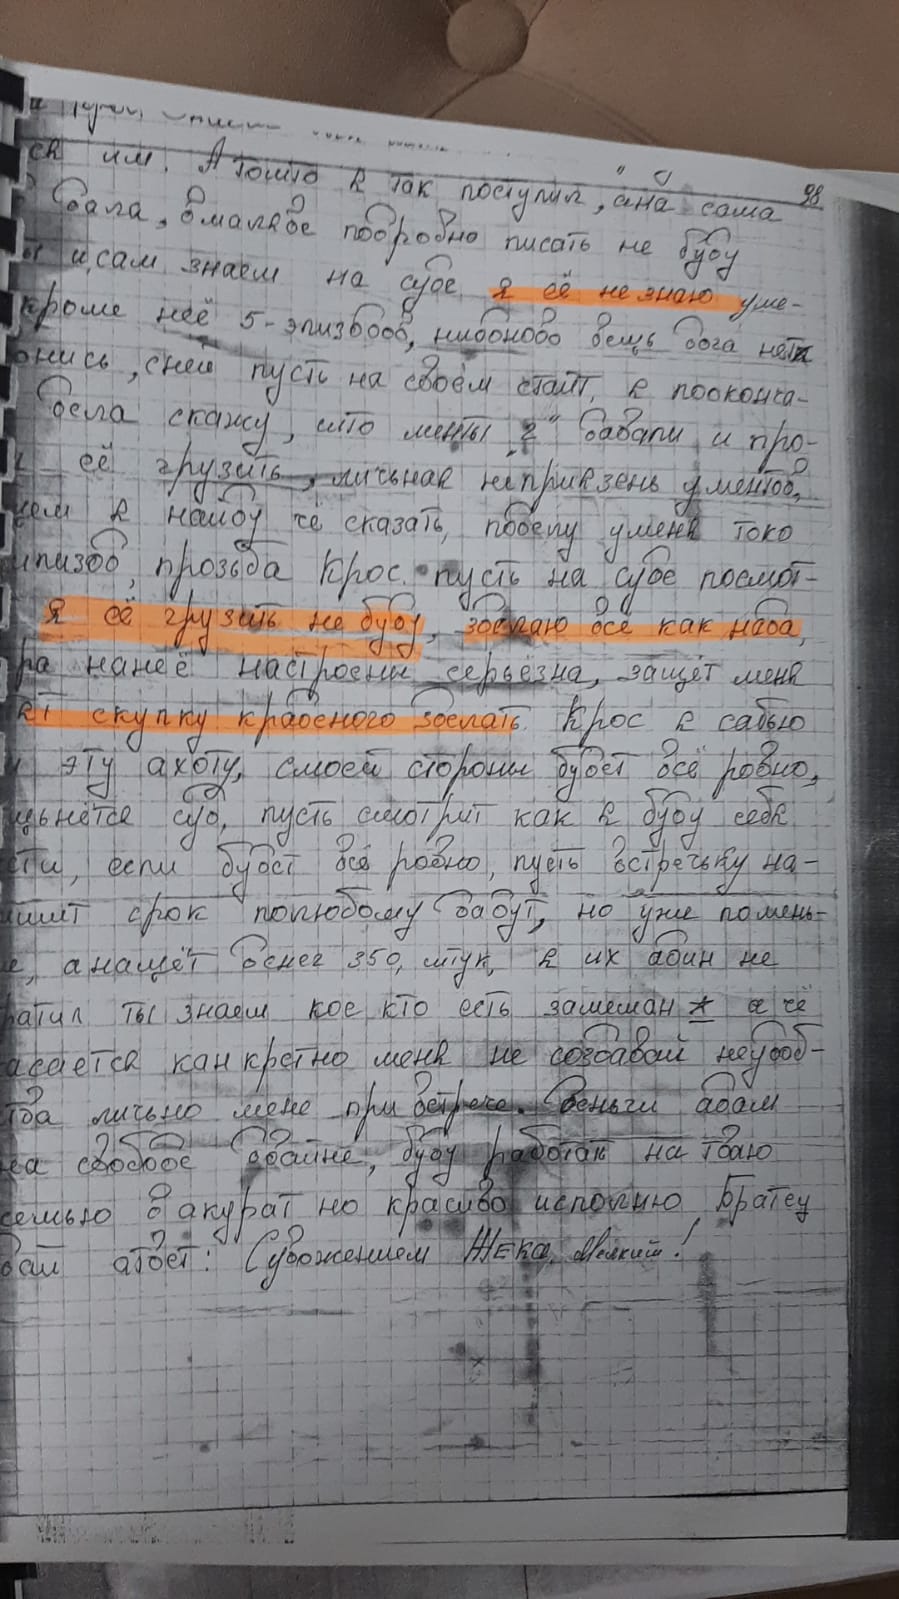 98
ся им. А тошто я так поступил, ана сама
дала, вмалябе подробно писать не буду
и,сам знаем на суде я её не знаю уме-
кроме неё 5-эпизодов, ниодново вещь дога нет
онись, снеи пусть на своём стаит, я посконча-
дела скажу, што менты 2" давали и про-
её грузить, личьная неприязеньументов,
чем я найду чё сказать, поделу уменя токо
эпизод, прозьба Крос. пусть на суде посмот-
я её грузить не буду, зделаю всё как нада,
ра нанеё настроены серьезна, защет меня
ет скупку краденого зделать. Крос я сабью
эту ахоту, смоей стороны будет всё ровно,
чьнётся суд, пусть смотрит как я буду себя
сти, если будет всё ровно, пусть встречьку на-
ишит срок полюбому дадут, но уже помень-
е, анащёт денег 350, штук, я их адин не
ратил ты знаем кое кто есть замешан а чё
асается канкретно меня не создавай неудоб-
тва личьно мене при встрече. Деньги адам
на свободе двайне, буду работат на тваю
семью вакурат но красиво исполню Братец
вай атвет: Суважением ЖЕКА. Мелкий!